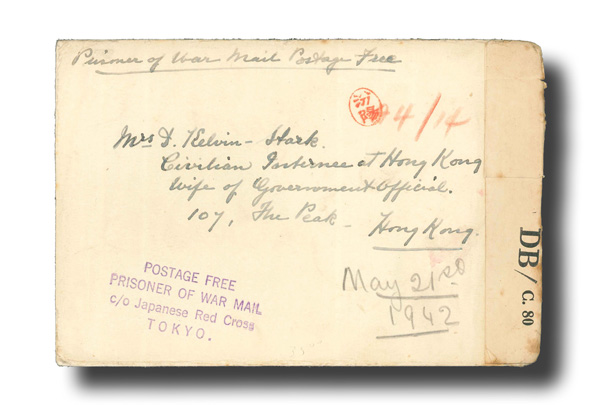 Prisoner of War Mail Postage Free
4/14
Mrs D. Kelvin-Stark.
Civilian Internee at Hong Kong
Wife of Government Official.
107, The Peak - Hong Kong.
May 21st
1942
POSTAGE FREE
PRISONER OF WAR MAIL
c/o Japanese Red Cross
TOKYO.
DB/C. 80